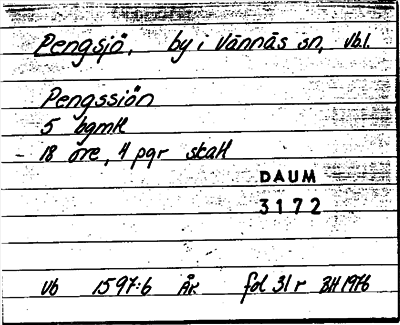 Pengsjö, by i Vännäs sn, Vb.l.
Pengssiön
5 bgmtl
18 öre, 4 pgr skatt
DAUM
3172
Vb 1597:6 ÅR fol 31 r BH 1976